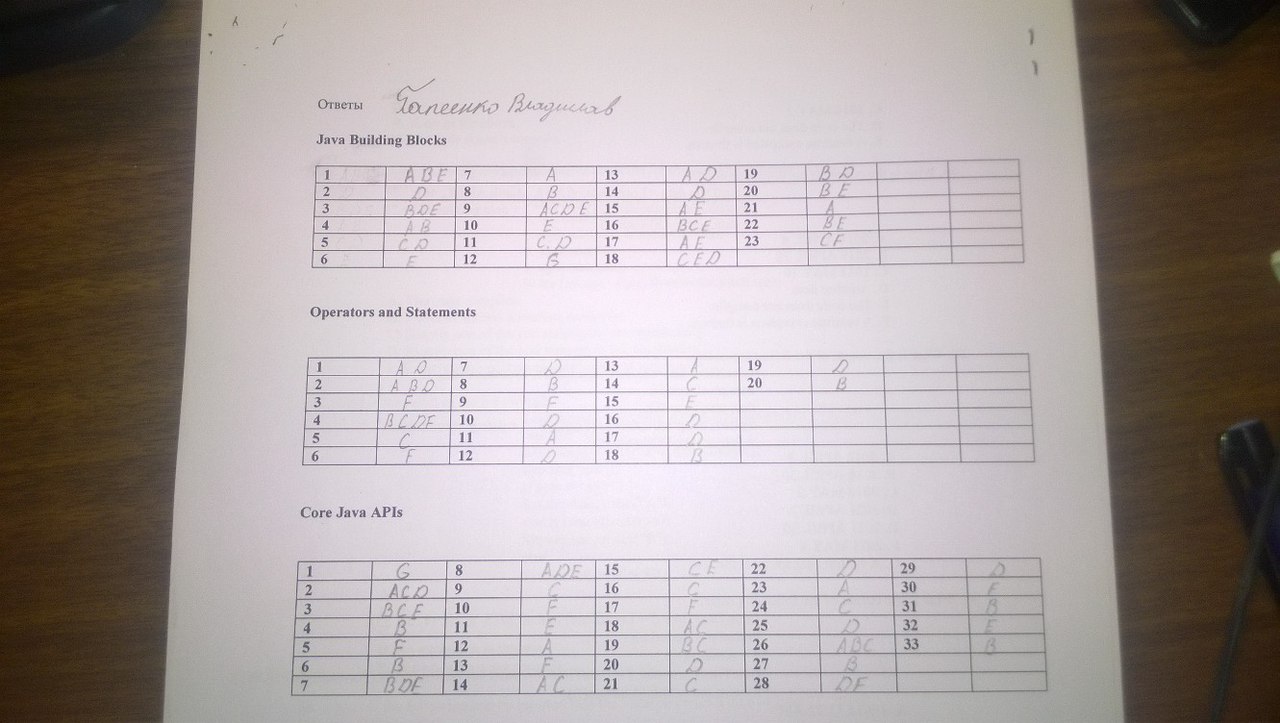 Ответы Гапеенко Владислав
Java Building Blocks
1 ABE 7 A 13 AD 19 BD
2 D 8 B 14 D 20 BE
3 BDE 9 ACDE 15 AE 21 A
4 AB 10 E 16 BCE 22 BE
5 CD 11 C,D 17 AE 23 CF
6 E 12 G 18 CED
Operators and Statements
1 AD 7 D 13 A 19 D
2 ABD 8 B 14 C 20 B
3 F 9 F 15 E
4 BCDF 10 D 16 D
5 C 11 A 17 D
6 F 12 D 18 B
Core Java APIs
1 G 8 ADE 15 CE 22 D 29 D
2 ACD 9 C 16 C 23 A 30 E
3 BCE 10 F 17 F 24 C 31 B
4 B 11 E 18 AC 25 D 32 E
5 F 12 A 19 BC 26 ABC 33 B
6 B 13 F 20 D 27 B
7 BDF 14 AC 21 C 28 DF